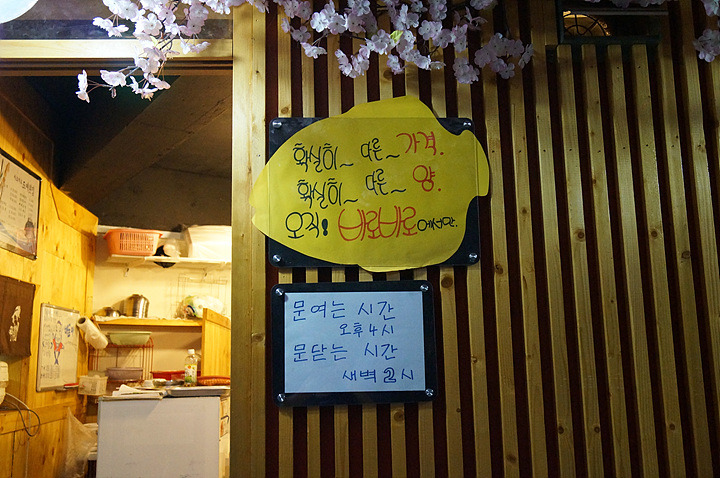 확실히~ 다른~ 가격.
확실히~ 다른~ 양.
오직! 바로바로에서만.
문여는 시간
오후 4시
문닫는 시간
새벽 2시